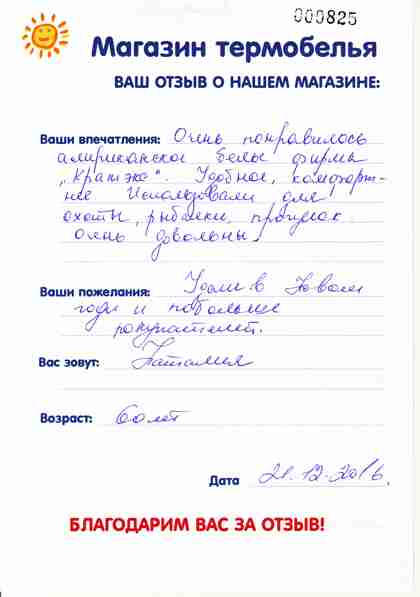 000825
Магазин термобелья
ВАШ ОТЗЫВ О НАШЕМ МАГАЗИНЕ:
Ваши впечатления: Очень понравилось
американское белье фирмы
„Кратэкс". Удобное, комфорт-
ное Использовали для
охоты, рыбалки, прогулок.
Очень довольны.
Ваши пожелания: Удачи в Новом
году и побольше
покупателей.
Вас зовут: Наталия
Возраст: 60 лет
Дата 21.12.2016.
БЛАГОДАРИМ ВАС ЗА ОТЗЫВ!